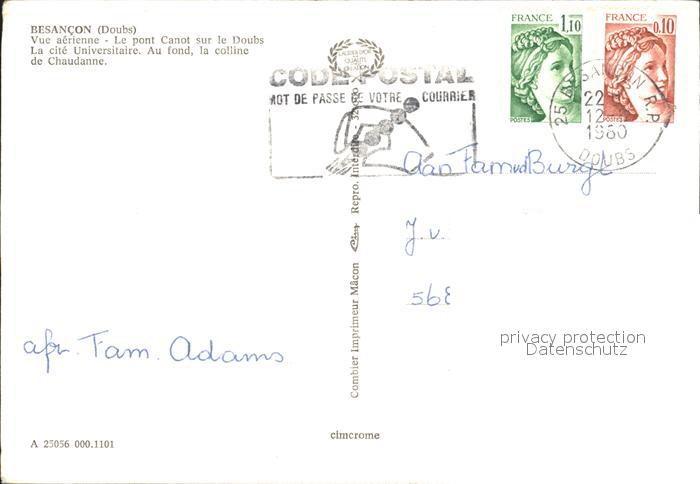 BESANÇON (Doubs)
Vue aérienne - Le pont Canot sur le Doubs
La cité Universitaire. Au fond, la colline
de Chaudanne.
CODE POSTAL
MOT DE PASSE DE VOTRE COURRIER
FRANCE
1,10
POSTES
FRANCE
0,10
POSTES
25 BESANÇON R.P.
22
12
1980
DOUBS
Aan Fam vd Burgt
J. v.
568
afz. Fam. Adams
Combier Imprimeur Mâcon Repro. Interdite -
privacy protection
Datenschutz
cimcrome
A 25056 000.1101